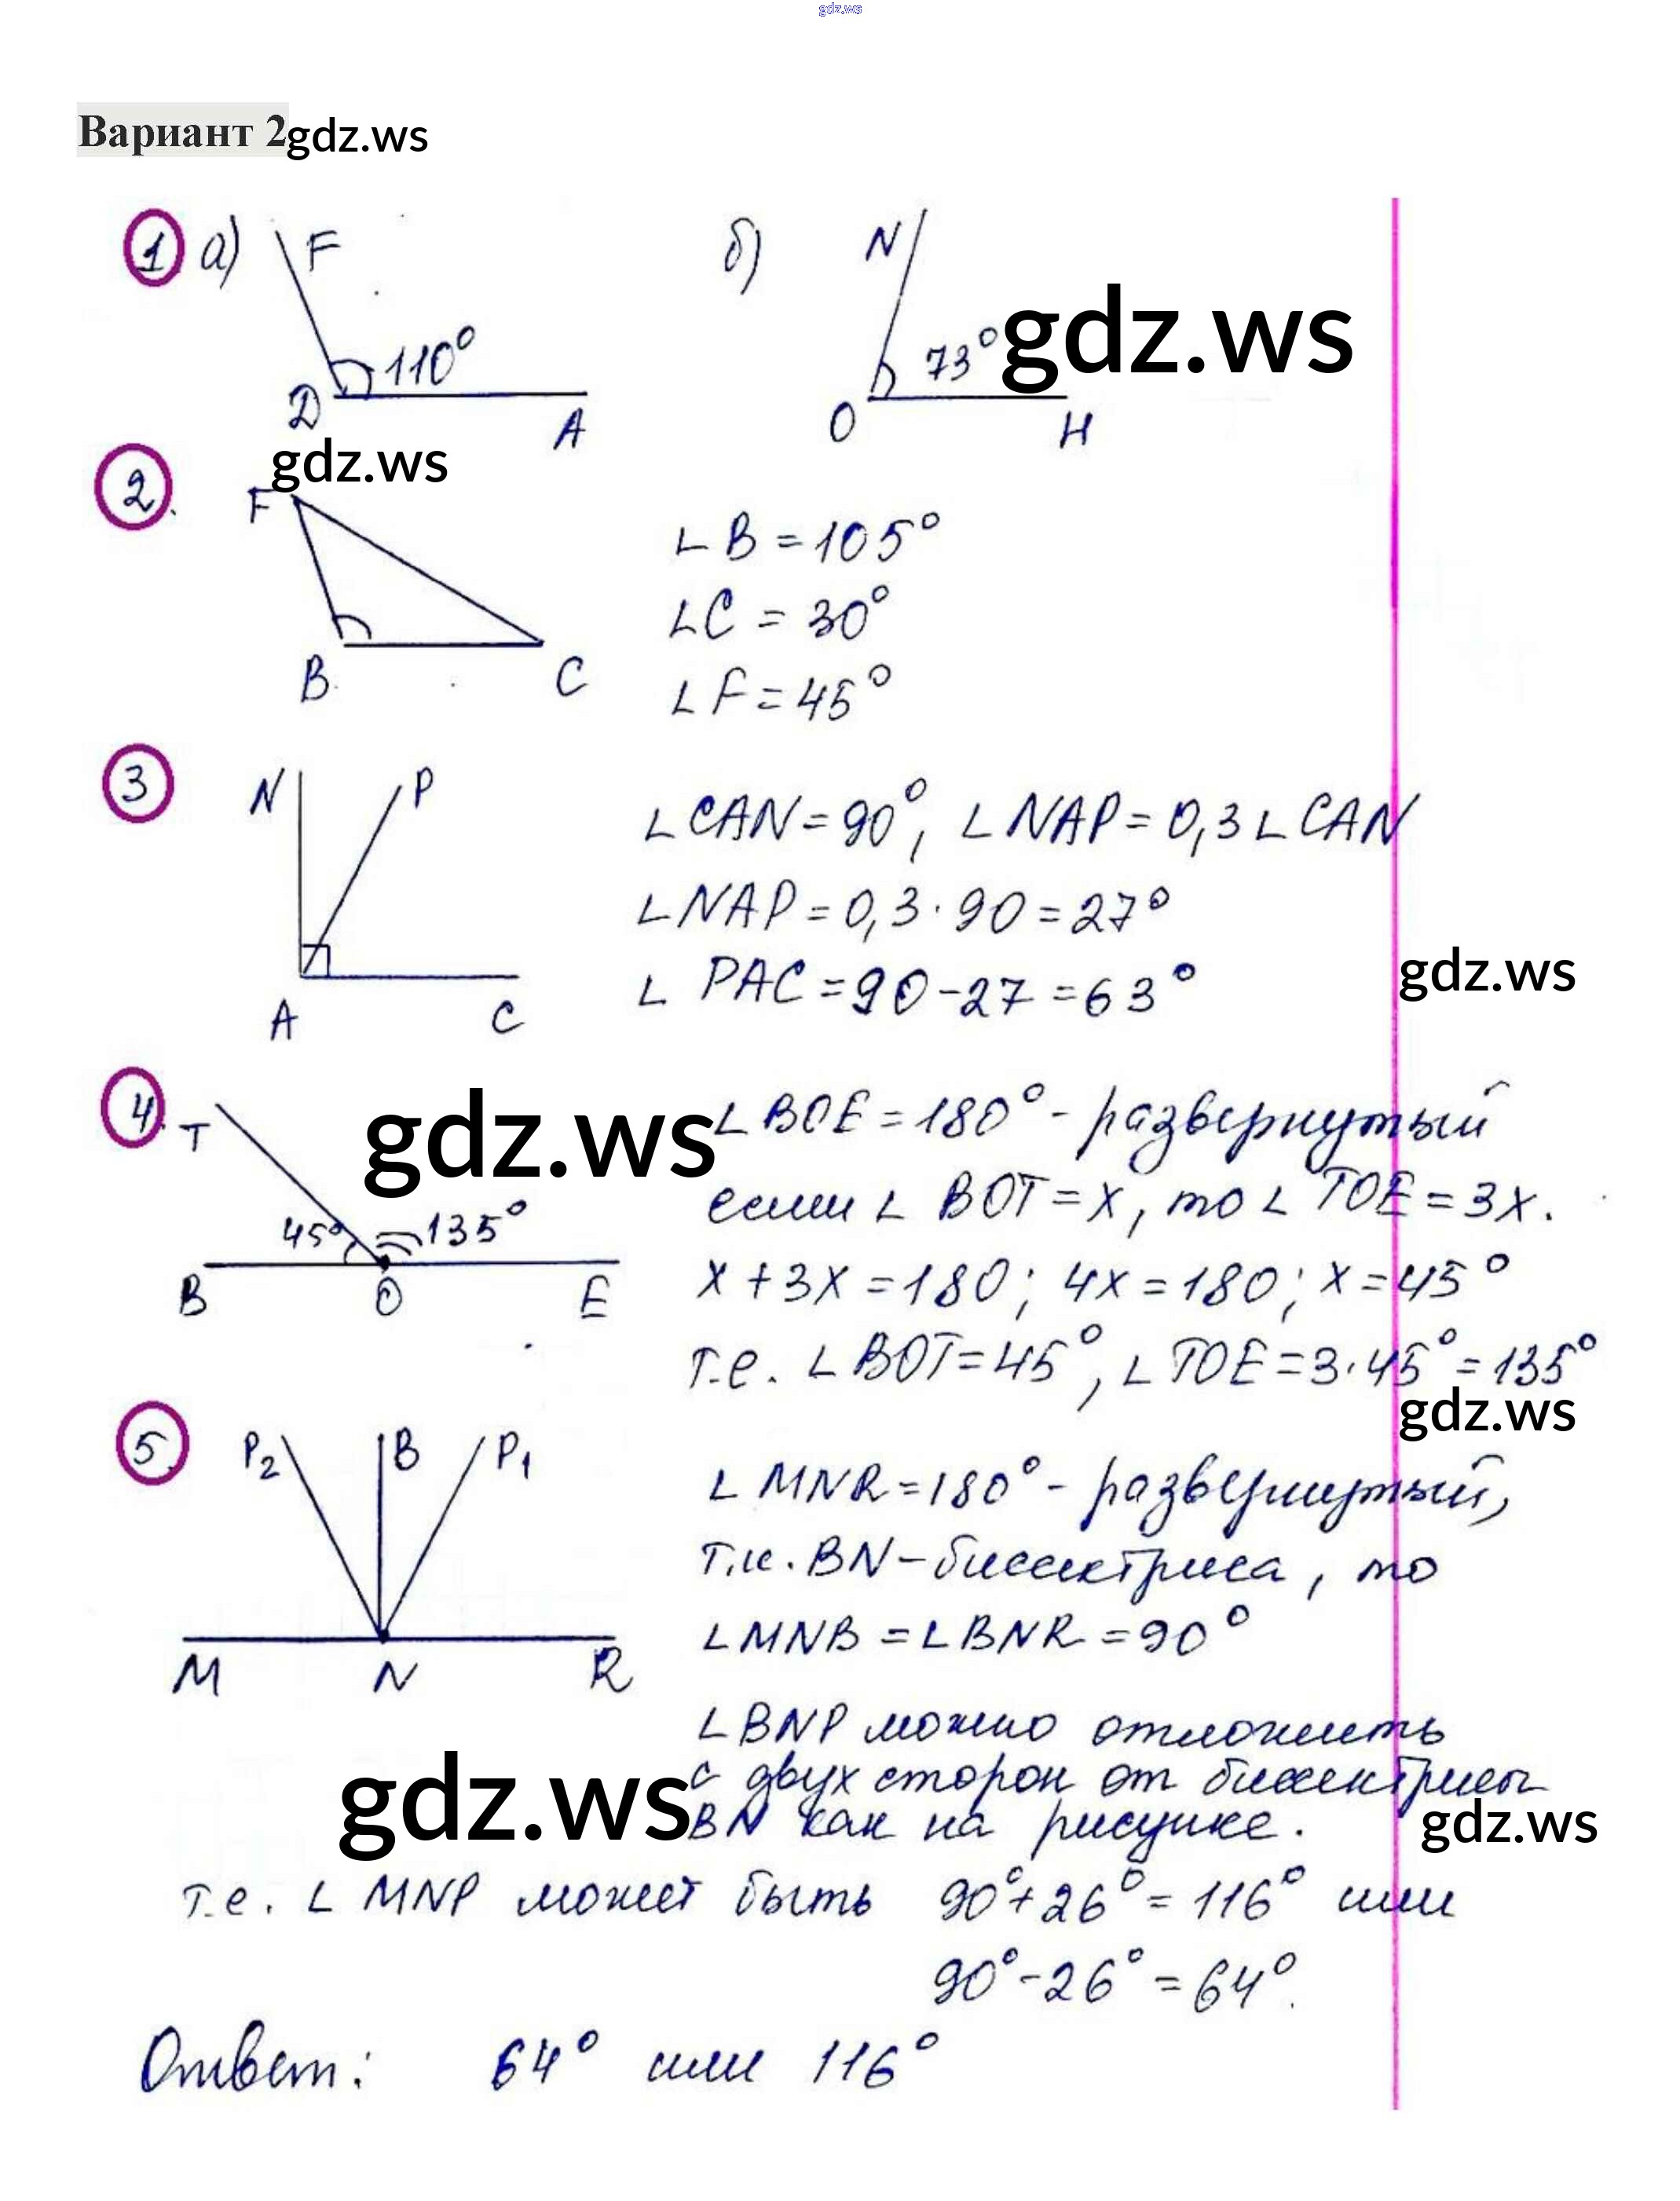 gdz.ws
Вариант 2 gdz.ws
1 а) F 110° D A
б) N 73° O H gdz.ws
gdz.ws
2. F B C
∠B = 105°
∠C = 30°
∠F = 45°
3 N P A C
∠CAN = 90°, ∠NAP = 0,3∠CAN
∠NAP = 0,3·90 = 27°
∠ PAC = 90 - 27 = 63°
gdz.ws
4. T 45° 135° B O E
gdz.ws
∠BOE = 180° - развернутый
если ∠ BOT = x, то ∠ TOE = 3x.
x + 3x = 180; 4x = 180; x = 45°
т.е. ∠BOT = 45°, ∠TOE = 3·45° = 135°
gdz.ws
5. P2 B P1 M N R
∠MNR = 180° - развернутый,
т.к. BN - биссектриса, то
∠MNB = ∠BNR = 90°
∠BNP можно отложить
с двух сторон от биссектрисы
BN как на рисунке.
gdz.ws
gdz.ws
т.е. ∠ MNP может быть 90° + 26° = 116° или
90° - 26° = 64°.
Ответ: 64° или 116°